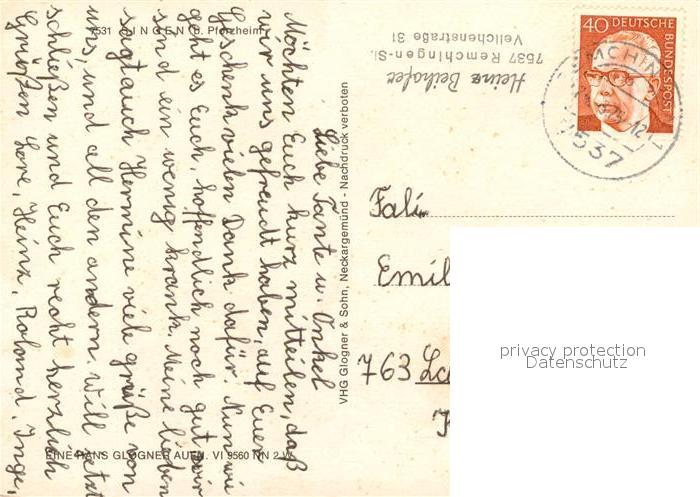 7531
INGEN (b. Pforzheim)
Liebe Tante u. Onkel
Möchten Euch kurz mitteilen, daß
wir uns gefreudt haben, auf Euer
Geschenk vielen Dank dafür. Nun wie
geht es Euch, hoffendlich noch gut wir
sind ein wenig krank. Meine lieben
sagt auch Hermine viele grüße von
uns, und all den andern. Will jetzt
schließen und Euch recht herzlich
Grüßen Lore, Heinz, Roland, Inge,
EINE HANS GLOGNER AUFN. VI 9560 NN 2 W
VHG Glogner & Sohn, Neckargemünd - Nachdruck verboten
Heinz Beihofer
7537 Remchingen-Si.
Veilchenstraße 31
40 DEUTSCHE
BUNDESPOST
MCHIN
7537
Fali.
Emil
763
privacy protection
Datenschutz